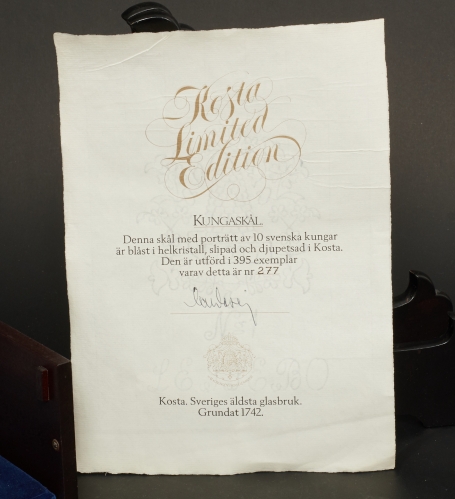 Kosta
Limited
Edition
KUNGASKÅL
Denna skål med porträtt av 10 svenska kungar
är blåst i helkristall, slipad och djupetsad i Kosta.
Den är utförd i 395 exemplar
varav detta är nr 277
Kosta. Sveriges äldsta glasbruk.
Grundat 1742.